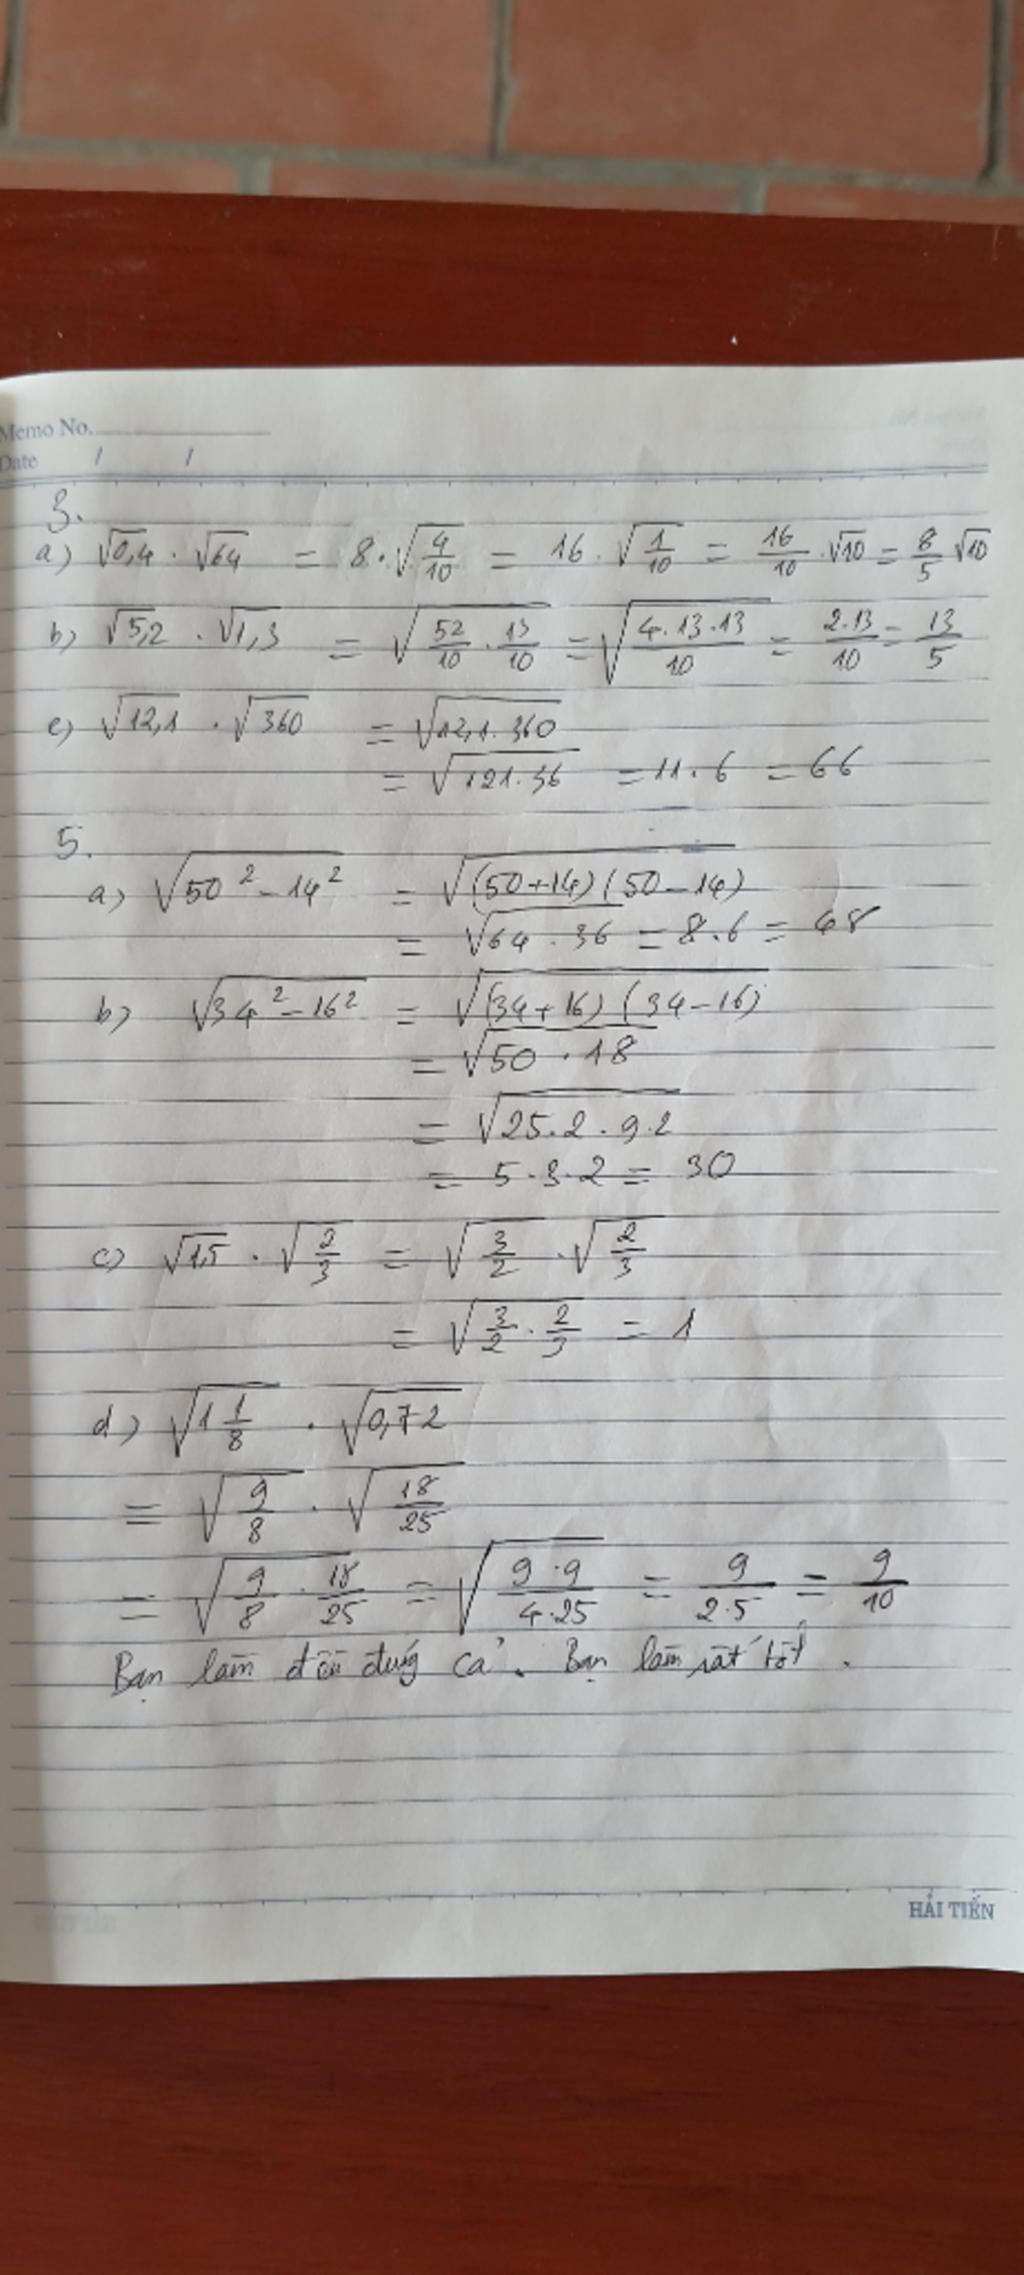 Memo No.
Date / /
3.
a) √0,4 . √64 = 8 . √(4/10) = 16 . √(1/10) = 16/10 . √10 = 8/5 √10
b) √5,2 . √1,3 = √(52/10 . 13/10) = √(4.13.13/10) = 2.13/10 = 13/5
c) √12,1 . √360 = √(12,1.360)
= √(121.36) = 11.6 = 66
5.
a) √(50² - 14²) = √((50+14)(50-14))
= √(64 . 36) = 8.6 = 48
b) √(34² - 16²) = √((34+16)(34-16))
= √(50 . 18)
= √(25.2.9.2)
= 5.3.2 = 30
c) √1,5 . √(2/3) = √(3/2) . √(2/3)
= √(3/2 . 2/3) = 1
d) √(1 1/8) . √0,72
= √(9/8) . √(18/25)
= √(9/8 . 18/25) = √(9.9/4.25) = 9/2.5 = 9/10
Bạn làm đều đúng cả. Bạn làm rất tốt.
HẢI TIẾN